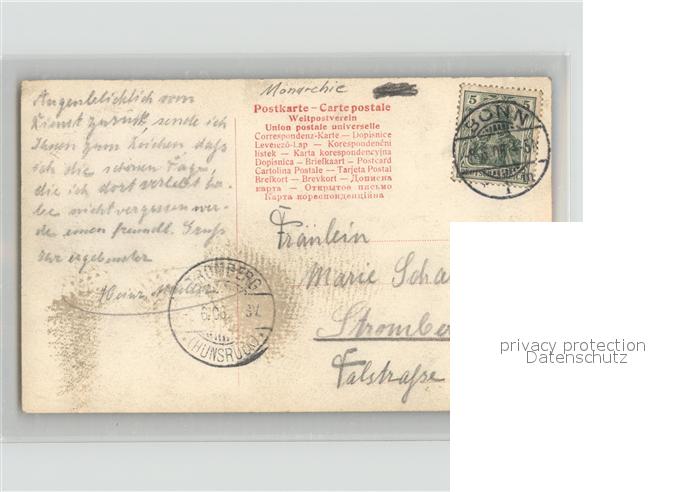 Monarchie
Augenblicklich vom
Dienst zurück, sende ich
Ihnen zum Zeichen daß
ich die schönen Tage,
die ich dort verlebt ha-
be nicht vergessen wer-
de einen freundl. Gruß
Ihr ergebenster
Heinz
Postkarte – Carte postale
Weltpostverein
Union postale universelle
Correspondenz-Karte — Dopisnice
Levelező-Lap — Korespondenční
lístek — Karta korespondencyjna
Dopisnica — Briefkaart — Postcard
Cartolina Postale — Tarjeta Postal
Brefkort — Brevkort — Дописна
карта — Открытое письмо
Карта кореспонденційна
5 5
BONN
Fräulein
Marie Scha
Stromber
Talstraße
STROMBERG
(HUNSRÜCK)
privacy protection
Datenschutz